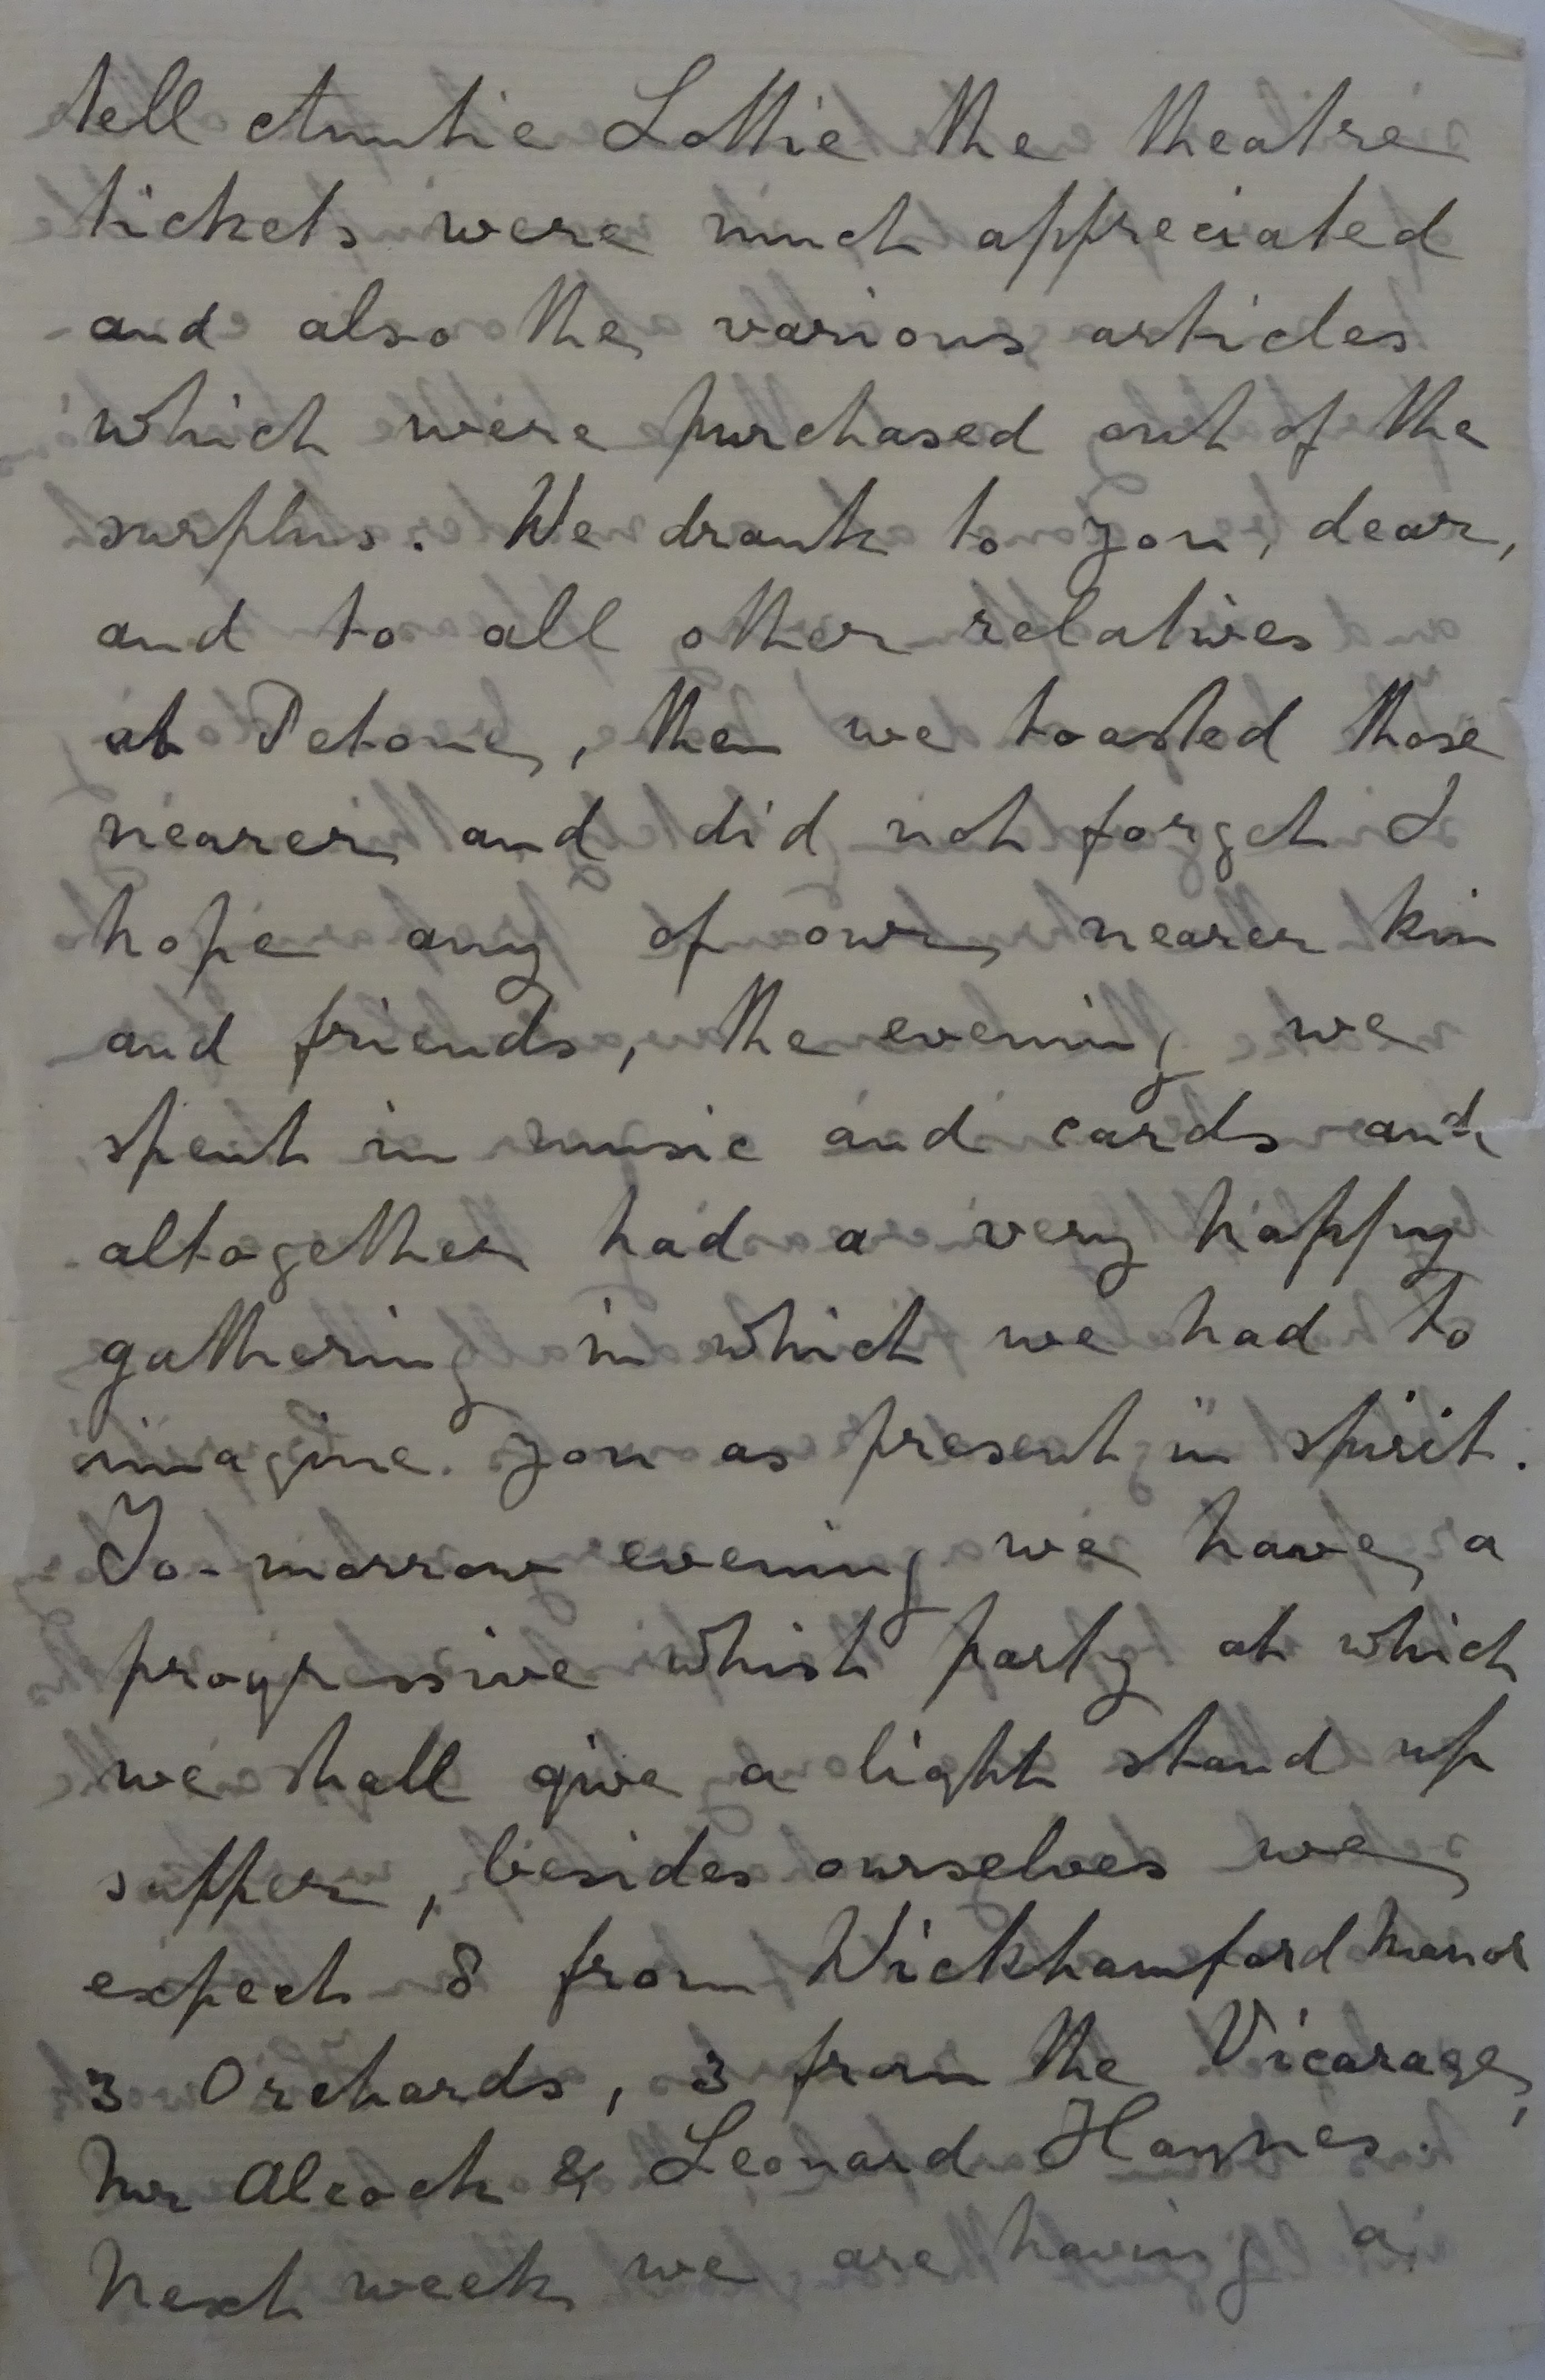 tell Auntie Lottie the theatre
tickets were much appreciated
and also the various articles
which were purchased out of the
surplus. We drank to you, dear,
and to all other relatives
at Petone, then we toasted those
nearer and did not forget I
hope any of our nearer kin
and friends, the evening we
spent in music and cards and
altogether had a very happy
gathering in which we had to
imagine you as present in spirit.
To-morrow evening we have a
progressive whist party at which
we shall give a light stand up
supper, besides ourselves we
expect 8 from Wickhamford Manor
3 Orchards, 3 from the Vicarage,
Mr Alcock & Leonard Haynes.
Next week we are having a